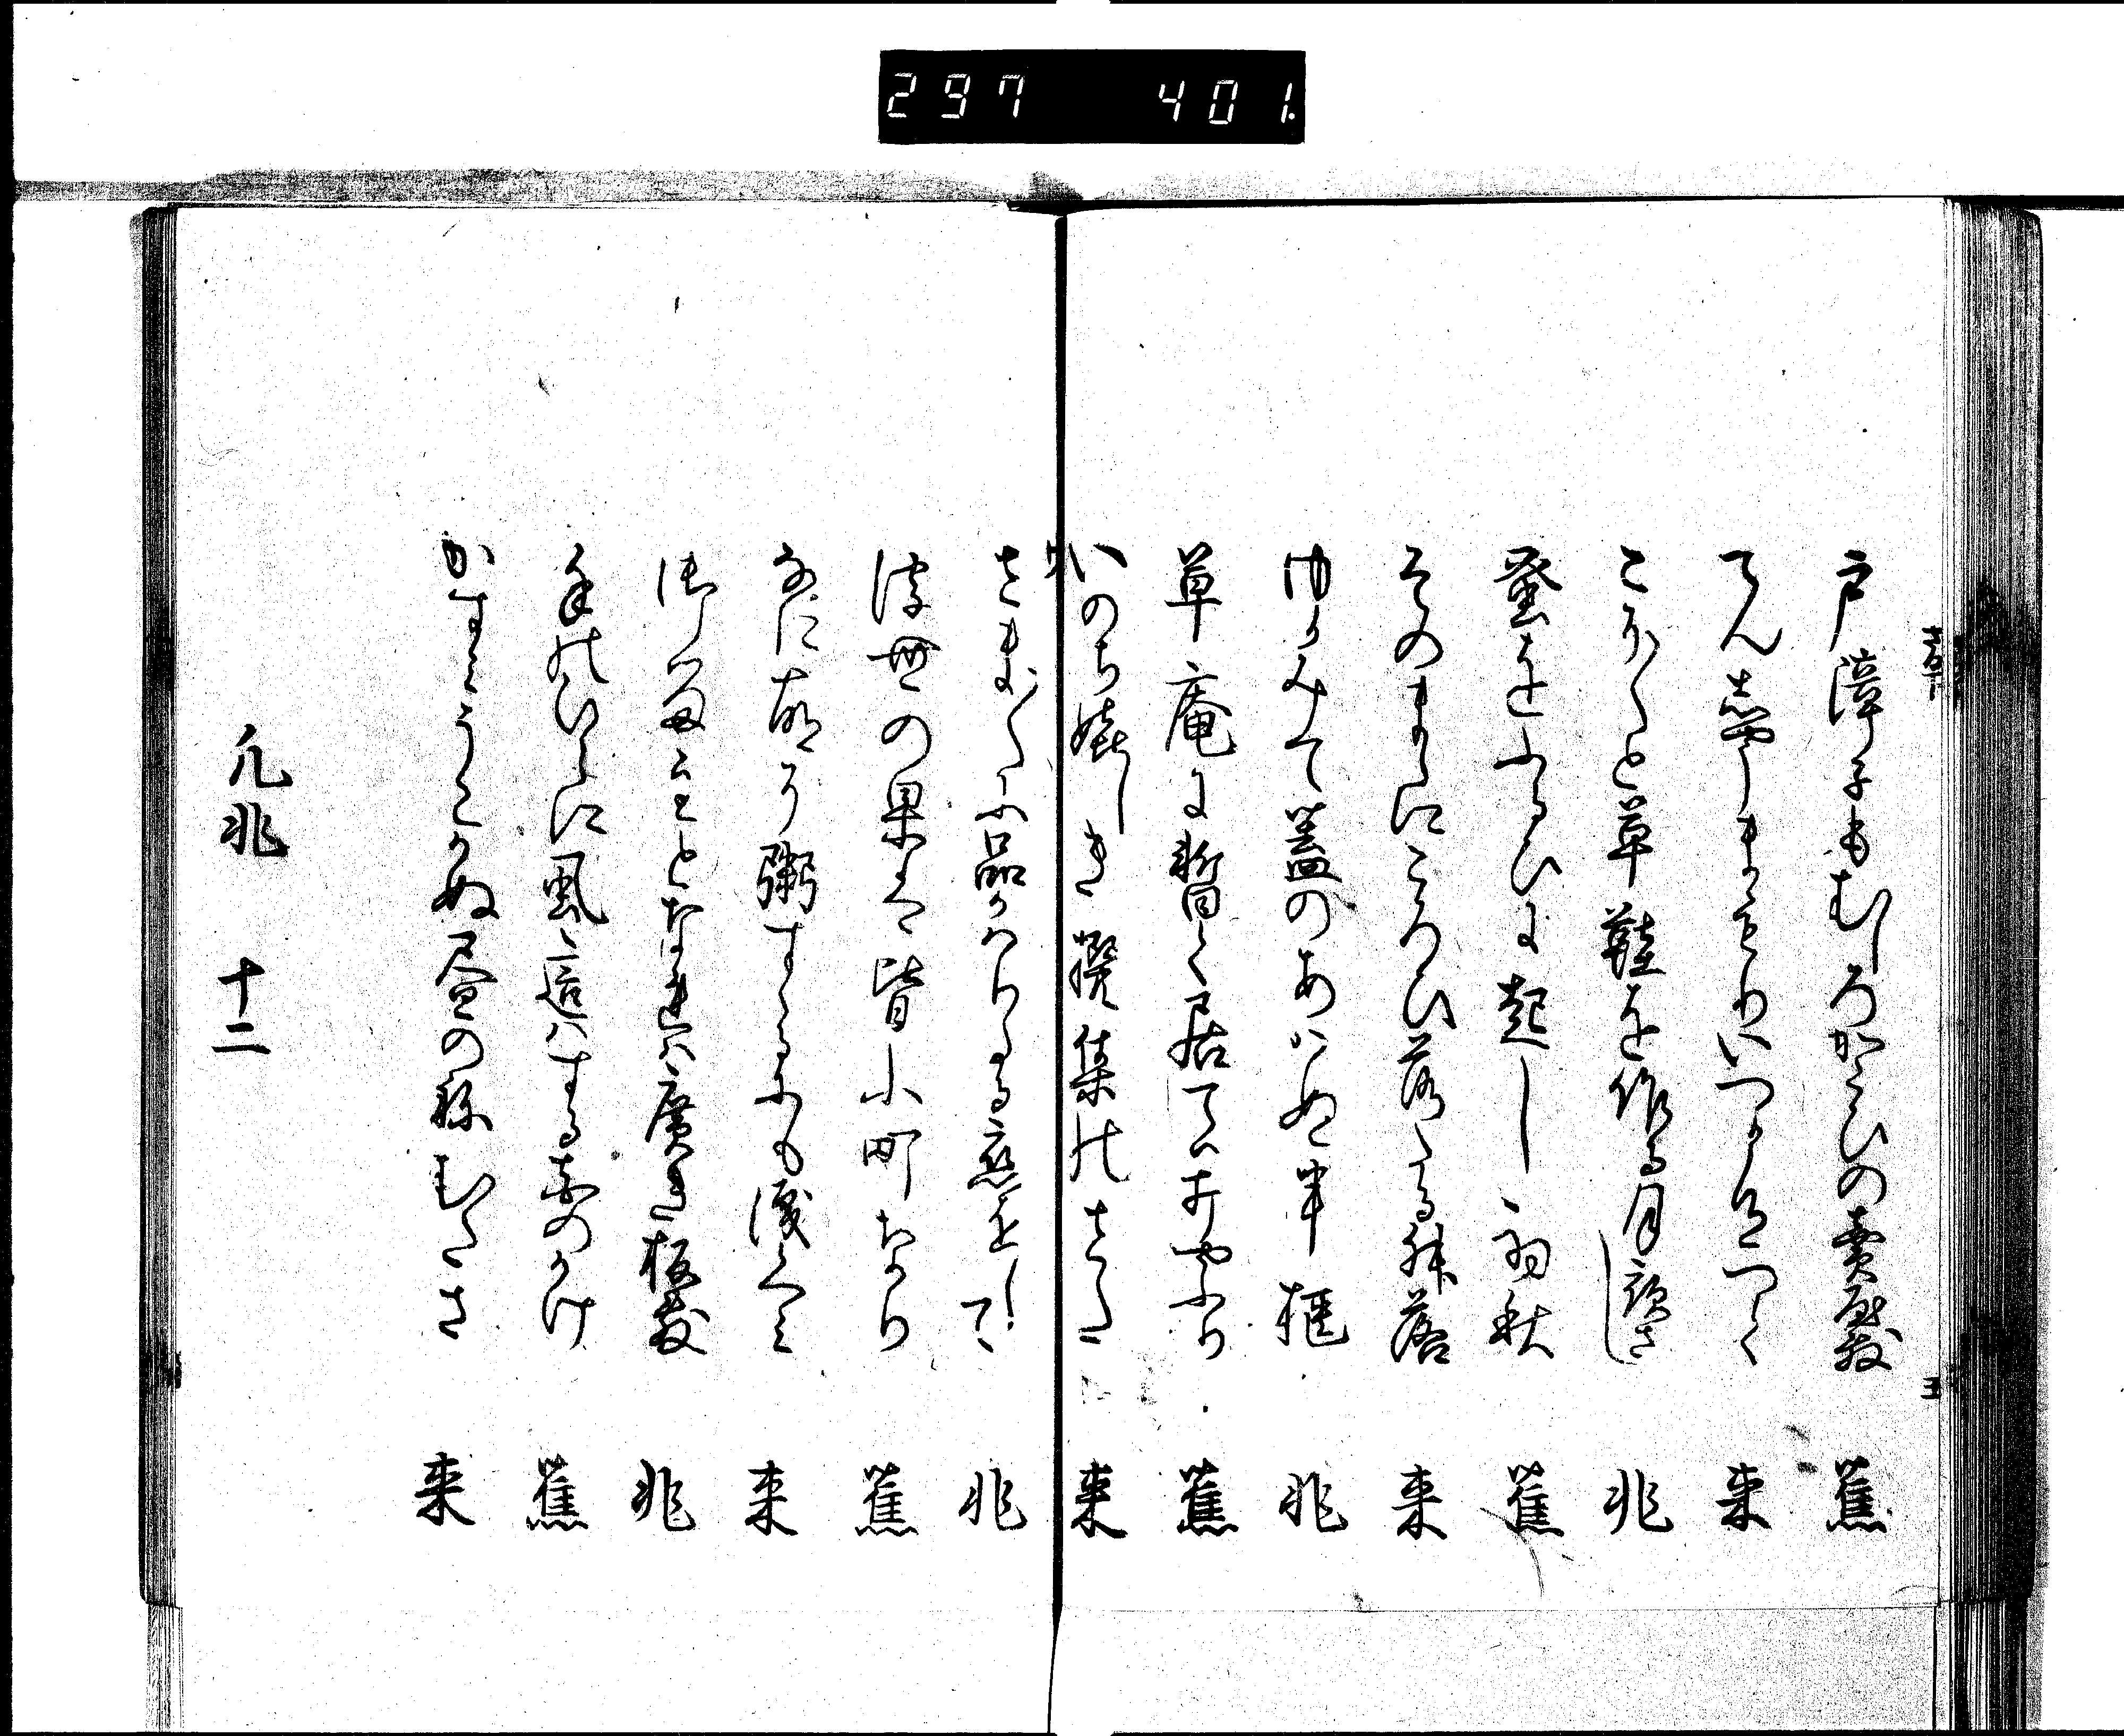 297 401.
戸障子もむしろかこひの賣屋敷 蕉
てん志やうまもりいつか色つく 来
こそ〱と草鞋を作る月夜さし 兆
蚤をふるひに起し初秋 蕉
そのまゝにころひ落たる舛落 来
ゆかみて蓋のあはぬ半櫃 兆
草庵に暫く居ては打やふり 蕉
いのち嬉しき撰集のさた 来
さま〲に品かはりたる恋をして 兆
浮世の果は皆小町なり 蕉
なに故そ粥すゝるにも涙くみ 来
御留主となれは廣き板敷 兆
手のひらに虱這はする花のかけ 蕉
かすみうこかぬ昼のねむたさ 来
凡兆 十二